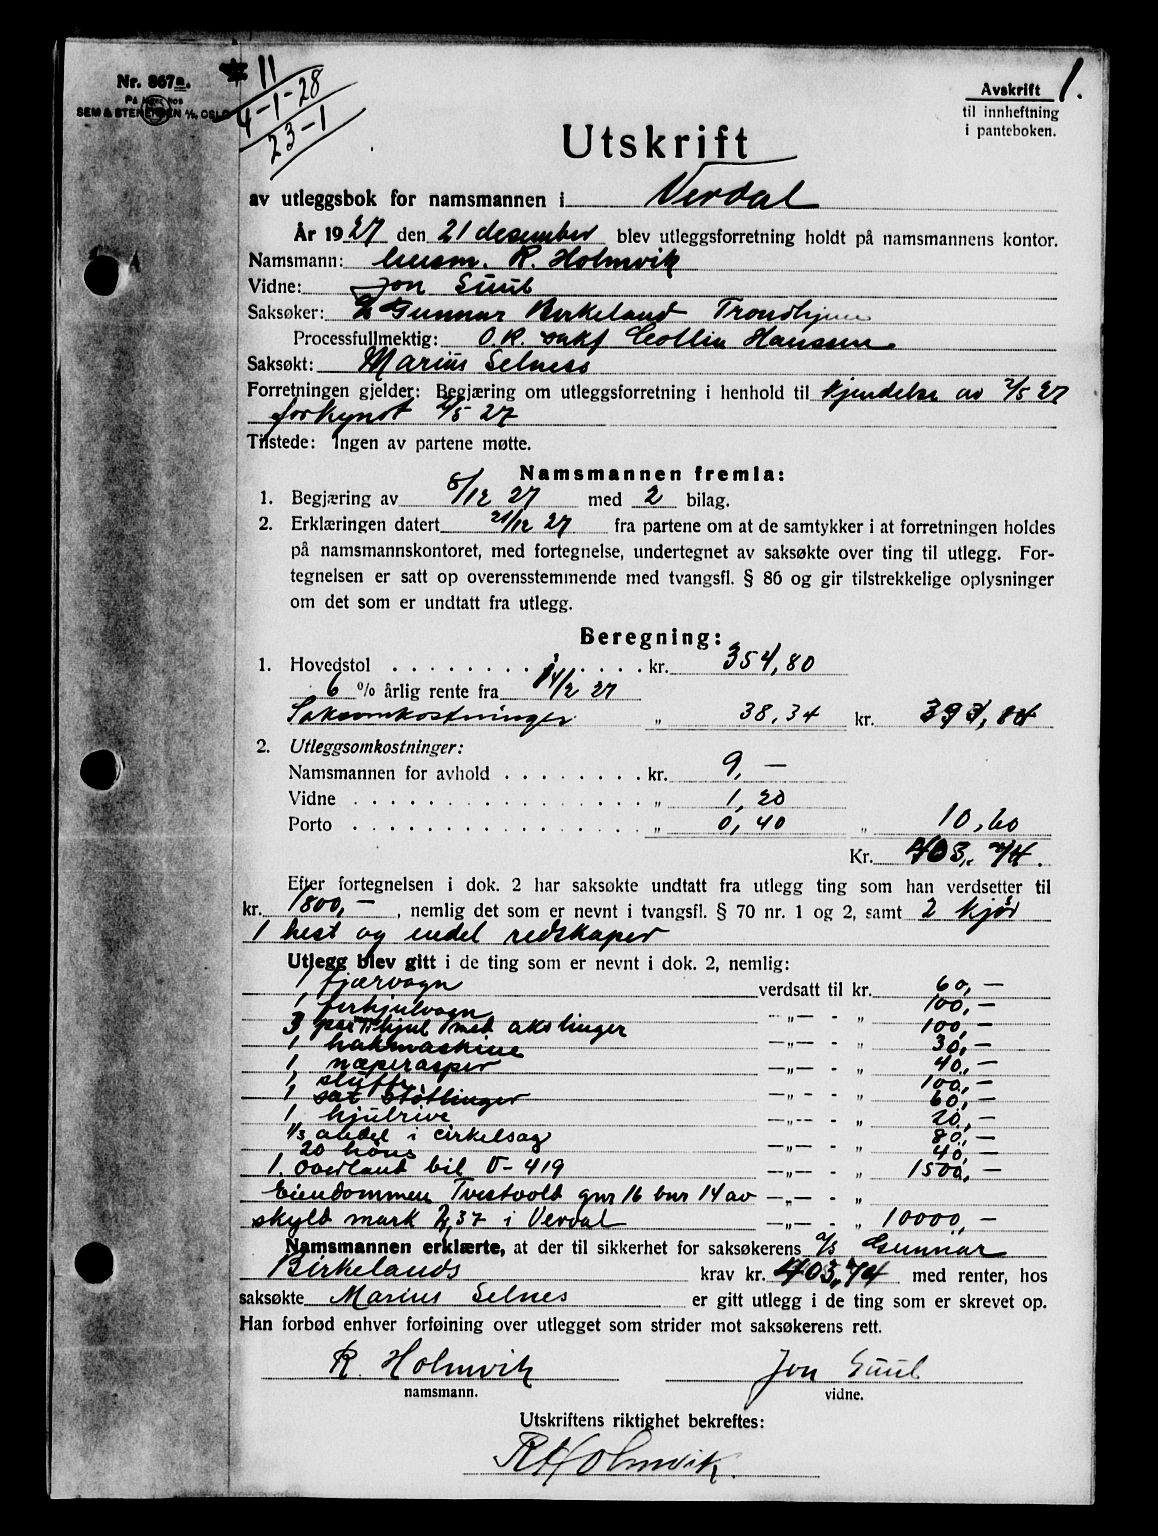 Nr. 867a.
På lager hos
SEM & STENERSEN A/S, OSLO
11
4-1-28
23-1
1.
Avskrift
til innheftning
i panteboken.
Utskrift
av utleggsbok for namsmannen i Verdal
År 1927 den 21 desember blev utleggsforretning holdt på namsmannens kontor.
Namsmann: Lensm. R. Holmvik
Vidne: Jon Suul
Saksøker: Gunnar Birkeland Trondhjem
Processfullmektig: O.R. sakf Collin Hanssen
Saksøkt: Marius Selness
Forretningen gjelder: Begjæring om utleggsforretning i henhold til kjendelse av 2/5 27
forkynt 4/5 27
Tilstede: Ingen av partene møtte.
Namsmannen fremla:
1. Begjæring av 8/12 27 med 2 bilag.
2. Erklæringen datert 21/12 27 fra partene om at de samtykker i at forretningen holdes
på namsmannskontoret, med fortegnelse, undertegnet av saksøkte over ting til utlegg. For-
tegnelsen er satt op overensstemmende med tvangsfl. § 86 og gir tilstrekkelige oplysninger
om det som er undtatt fra utlegg.
Beregning:
1. Hovedstol . . . . . . . . . . . . . kr. 354,80
6 % årlig rente fra 14/2 27
Saksomkostninger „ 38,34 kr.
2. Utleggsomkostninger:
Namsmannen for avhold . . . . . . . . kr. 9,—
Vidne . . . . . . . . . . . . . . . . „ 1,20
Porto . . . . . . . . . . . . . . . . „ 0,40 „ 10,60
Kr. 403,74.
Efter fortegnelsen i dok. 2 har saksøkte undtatt fra utlegg ting som han verdsetter til
kr. 1800,— , nemlig det som er nevnt i tvangsfl. § 70 nr. 1 og 2, samt 2 kjør
1 hest og endel redskaper
Utlegg blev gitt i de ting som er nevnt i dok. 2, nemlig:
1 fjærvogn verdsatt til kr. 60,—
1 firhjulvogn —„— - „ 100,—
3 par hjul med akslinger 100,—
1 hakmaskine —„— - „ 30,—
1 næperasper 40,—
1 slufte —„— - „ 100,—
1 sat støtlinger —„— - „ 60,—
1 hjulrive —„— - „ 20,—
1/3 andel i cirkelsag 80,—
20 høns —„— - „ 40,—
1 overland bil U-419 —„— - „ 1500,—
Eiendommen Tvistvold gnr 16 bnr 14 av —„— - „
skyld mark 2,37 i Verdal —„— - „ 10000,—
Namsmannen erklærte, at der til sikkerhet for saksøkerens A/S Gunnar
Birkelands krav kr. 403,74 med renter, hos
saksøkte Marius Selnes er gitt utlegg i de ting som er skrevet op.
Han forbød enhver forføining over utlegget som strider mot saksøkerens rett.
R. Holmvik Jon Suul
namsmann. vidne.
Utskriftens riktighet bekreftes:
R Holmvik.